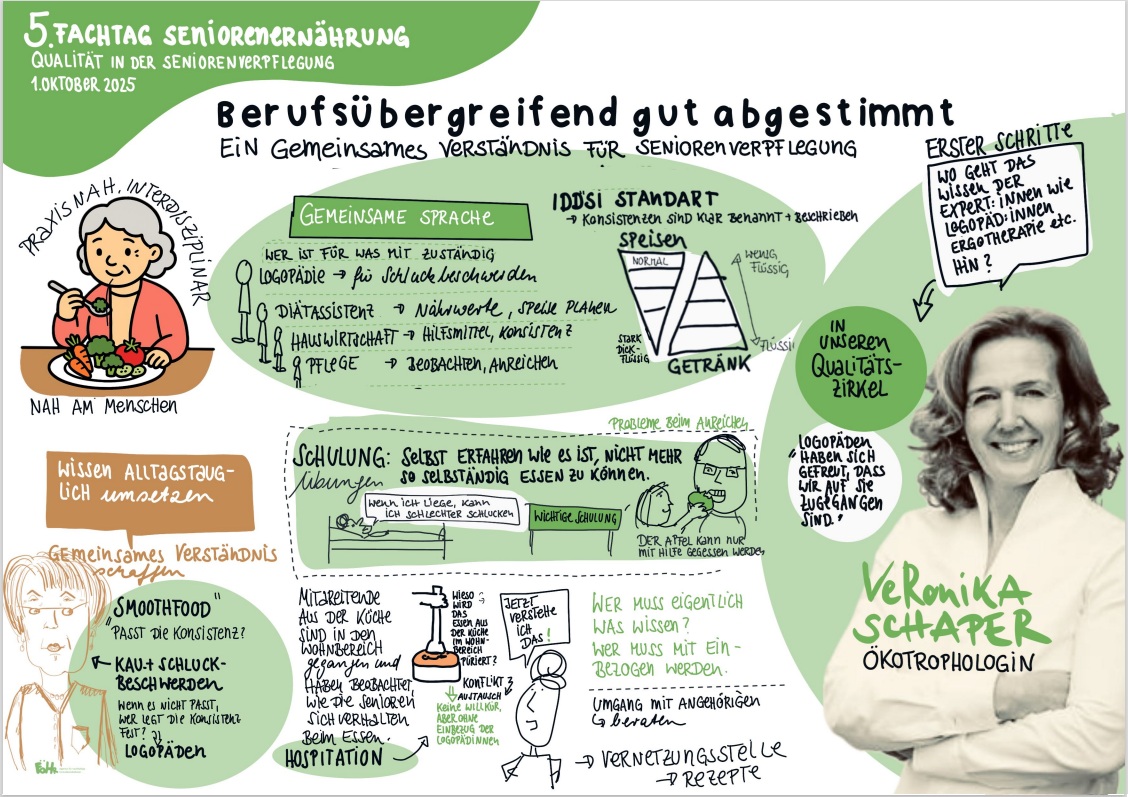 5. FACHTAG SENIORENERNÄHRUNG
QUALITÄT IN DER SENIORENVERPFLEGUNG
1. OKTOBER 2025
Berufsübergreifend gut abgestimmt
EIN GEMEINSAMES VERSTÄNDNIS FÜR SENIORENVERPFLEGUNG
PRAXISNAH, INTERDISZIPLINÄR
NAH AM MENSCHEN
GEMEINSAME SPRACHE
WER IST FÜR WAS MIT ZUSTÄNDIG
LOGOPÄDIE → für Schluckbeschwerden
DIÄTASSISTENZ → Nährwerte, SPEISE PLANEN
HAUSWIRTSCHAFT → HILFSMITTEL, KONSISTENZ
PFLEGE → BEOBACHTEN, ANREICHEN
IDDSI STANDART
→ KONSISTENZEN SIND KLAR BENANNT + BESCHRIEBEN
SPEISEN
NORMAL
WENIG
FLÜSSIG
STARK
DICK-
FLÜSSIG
FLÜSSI
GETRÄNK
ERSTER SCHRITTE
WO GEHT DAS
WISSEN DER
EXPERT:INNEN WIE
LOGOPÄD:INNEN
ERGOTHERAPIE etc.
HIN?
IN
UNSEREN
QUALITÄTS-
ZIRKEL
LOGOPÄDEN
"HABEN SICH
GEFREUT, DASS
WIR AUF SIE
ZUGEGANGEN
SIND."
VERONIKA
SCHAPER
ÖKOTROPHOLOGIN
PROBLEME BEIM ANREICHEN
SCHULUNG: SELBST ERFAHREN WIE ES IST, NICHT MEHR
Übungen SO SELBSTÄNDIG ESSEN ZU KÖNNEN.
WENN ICH LIEGE, KANN
ICH SCHLECHTER SCHLUCKEN
WICHTIGE SCHULUNG
DER APFEL KANN NUR
MIT HILFE GEGESSEN WERDEN
WISSEN ALLTAGSTAUG-
LICH umsetzen
GEMEINSAMES VERSTÄNDNIS
schaffen
"SMOOTHFOOD"
"PASST DIE KONSISTENZ?
← KAU + SCHLUCK-
BESCHWERDEN
WENN ES NICHT PASST,
WER LEGT DIE KONSISTENZ
FEST?
LOGOPÄDEN
MITARBEITENDE
AUS DER KÜCHE
SIND IN DEN
WOHNBEREICH
gegangen und
HABEN BEOBACHTET,
WIE DIE SENIOREN
SICH VERHALTEN
BEIM ESSEN.
HOSPITATION
WIESO
WIRD
DAS
ESSEN AUS
DER KÜCHE
IM WOHN-
BEREICH
PÜRIERT?
KONFLIKT
AUSTAUSCH
KEINE WILLKÜR,
ABER OHNE
EINBEZUG DER
LOGOPÄDINNEN
JETZT
VERSTEHE
ICH
DAS!
WER MUSS EIGENTLICH
WAS WISSEN?
WER MUSS MIT EIN-
BEZOGEN WERDEN.
UMGANG MIT ANGEHÖRIGEN
↳ beraten
→ VERNETZUNGSSTELLE
→ REZEPTE